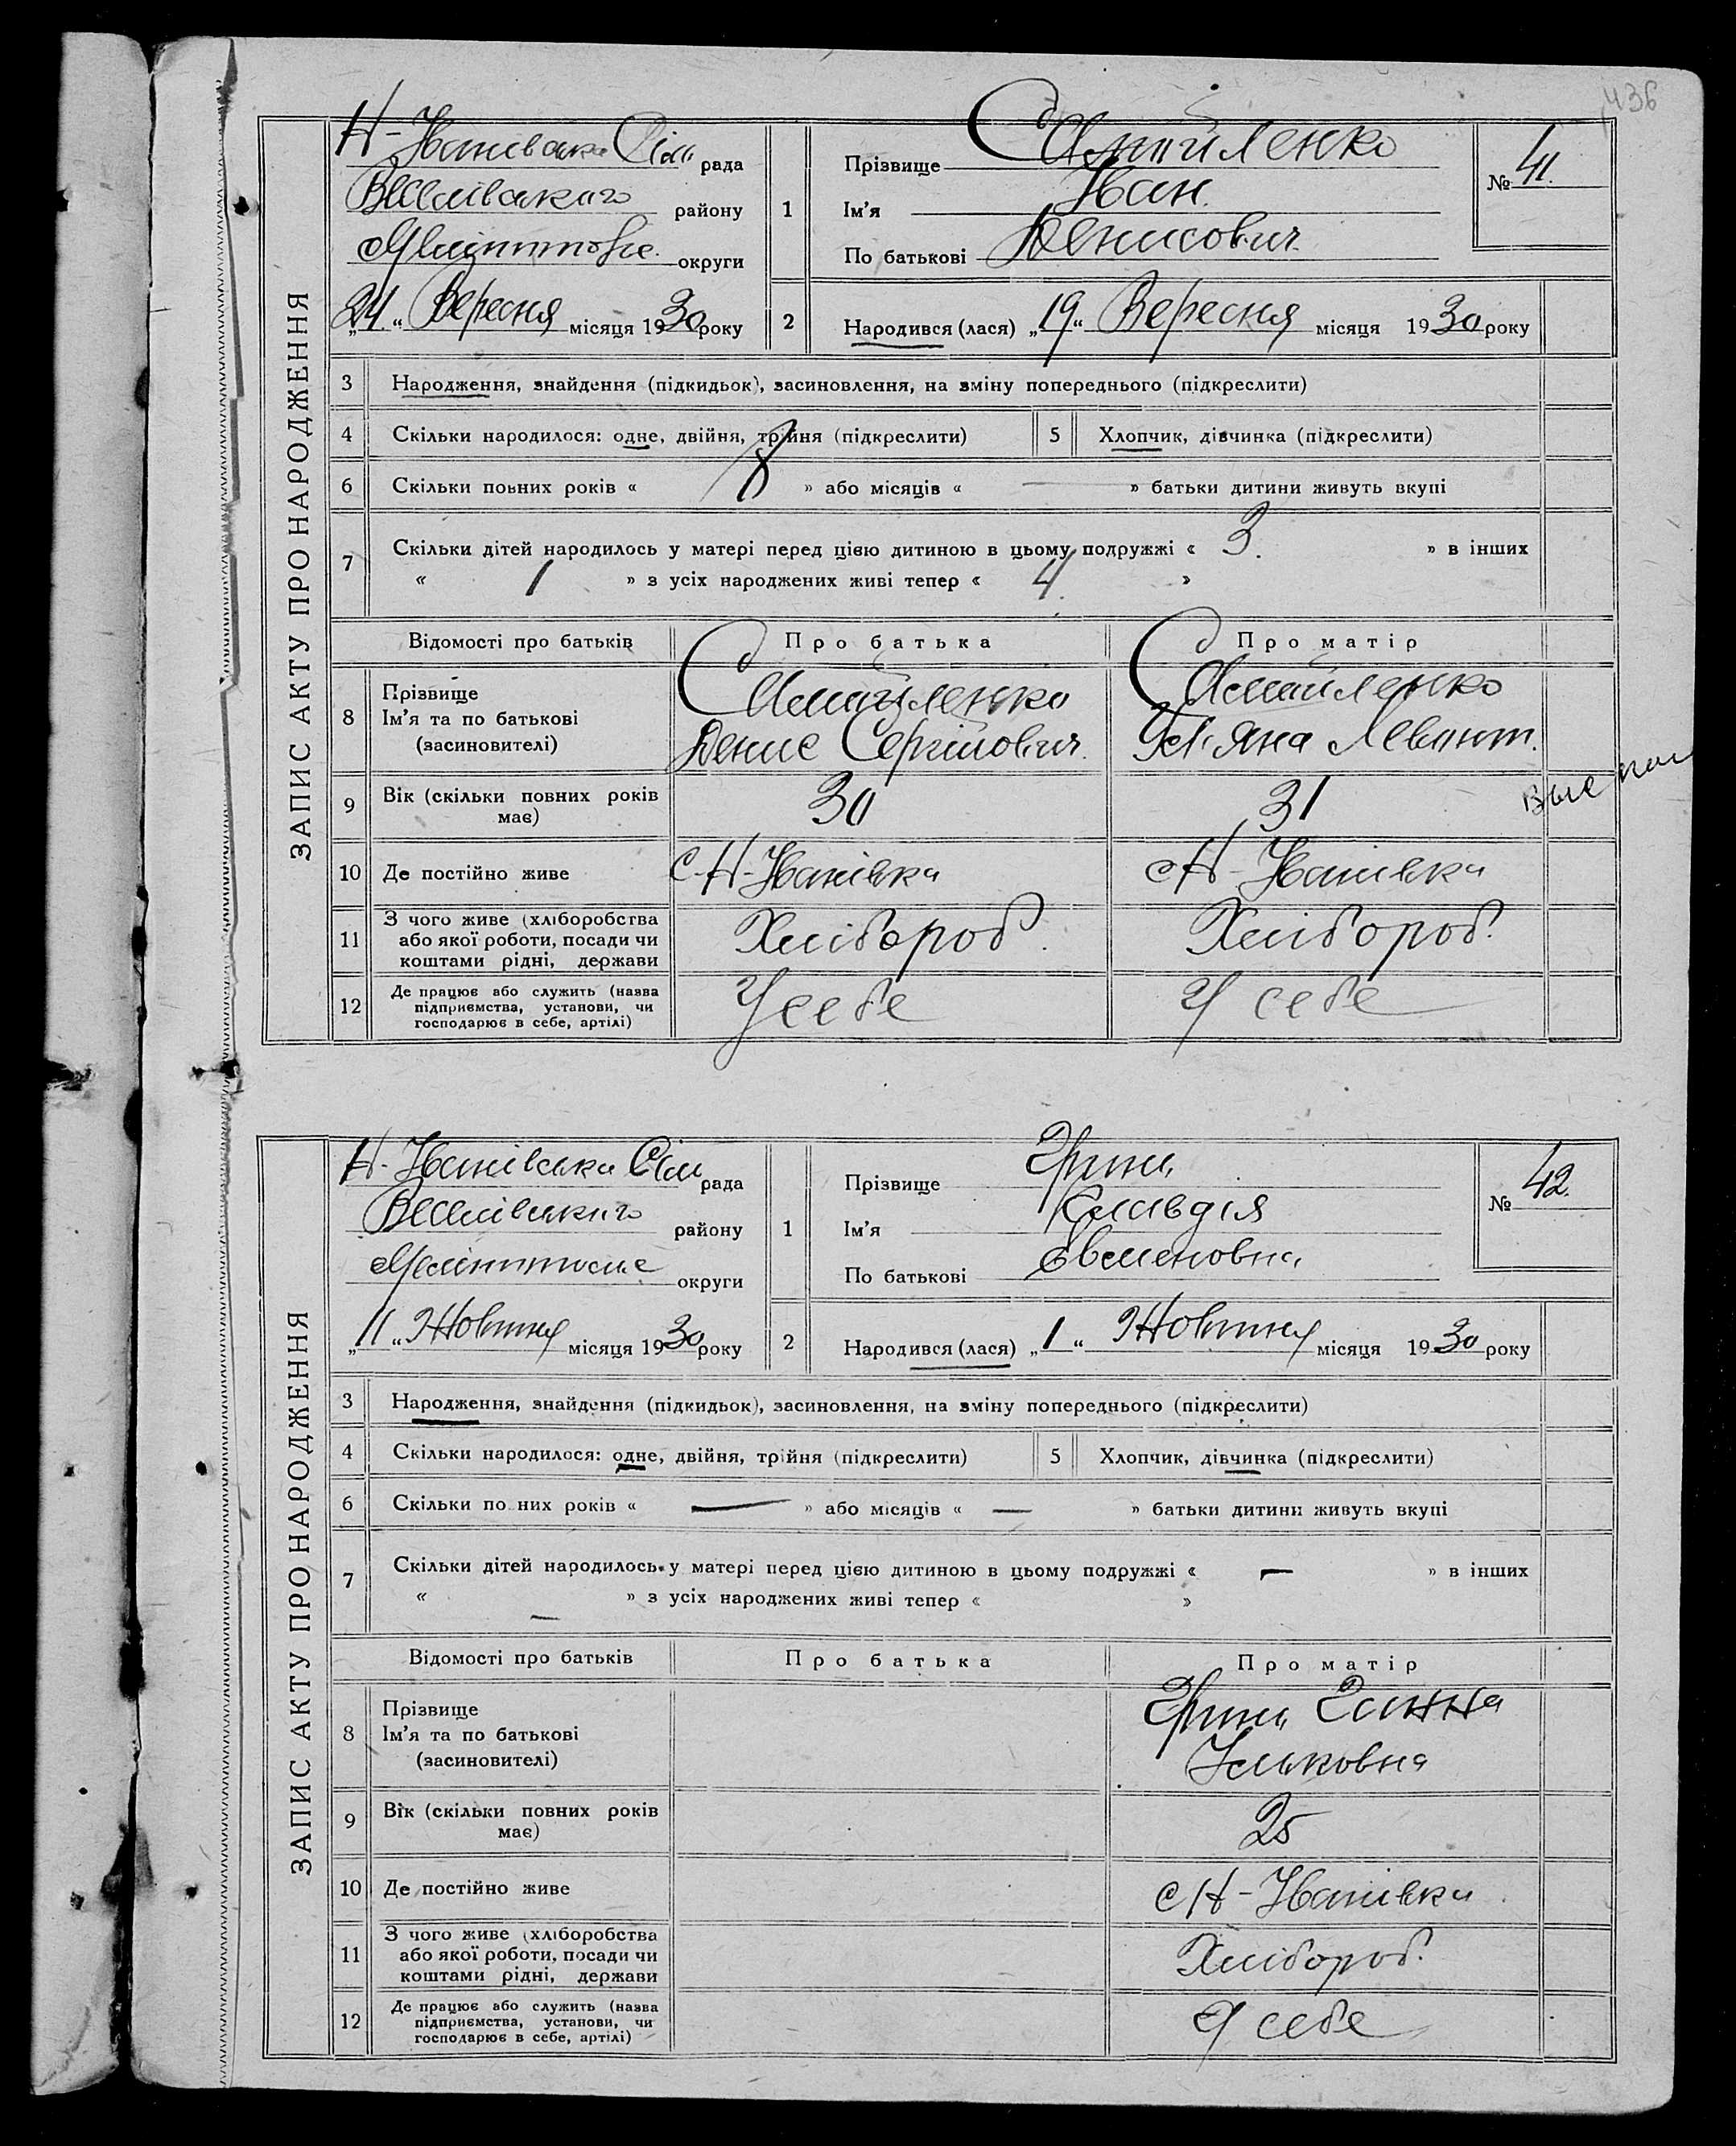 436
ЗАПИС АКТУ ПРО НАРОДЖЕННЯ
Н-Іванівська Сіль рада
Веселівського району
Меліттопське округи
„24“ Вересня місяця 1930 року
1
Прізвище Самійленко
Ім'я Іван.
По батькові Денисович
№ 41.
2 Народився (лася) „19“ Вересня місяця 1930 року
3 Народження, знайдення (підкидьок), засиновлення, на зміну попереднього (підкреслити)
4 Скільки народилося: одне, двійня, трійня (підкреслити) 5 Хлопчик, дівчинка (підкреслити)
6 Скільки повних років « 8 » або місяців « — » батьки дитини живуть вкупі
7 Скільки дітей народилось у матері перед цією дитиною в цьому подружжі « 3. » в інших
« 1 » з усіх народжених живі тепер « 4. »
Відомості про батьків Про батька Про матір
8 Прізвище Ім'я та по батькові (засиновителі) Самійленко Денис Сергійович Самойленко Тет'яна Левонт.
9 Вік (скільки повних років має) 30 31
10 Де постійно живе с-Н-Іванівка с Н-Іванівка
11 З чого живе (хліборобства або якої роботи, посади чи коштами рідні, держави Хлібороб. Хлібороб.
12 Де працює або служить (назва підприємства, установи, чи господарює в себе, артілі) У себе У себе
ЗАПИС АКТУ ПРО НАРОДЖЕННЯ
Н-Іванівська Сіль рада
Веселівського району
округи
„11“ Жовтня місяця 1930 року
1
Прізвище
Ім'я Клавдія
По батькові Євменовна
№ 42.
2 Народився (лася) „1“ Жовтня місяця 1930 року
3 Народження, знайдення (підкидьок), засиновлення, на зміну попереднього (підкреслити)
4 Скільки народилося: одне, двійня, трійня (підкреслити) 5 Хлопчик, дівчинка (підкреслити)
6 Скільки по них років « — » або місяців « — » батьки дитини живуть вкупі
7 Скільки дітей народилось у матері перед цією дитиною в цьому подружжі « — » в інших
« — » з усіх народжених живі тепер « »
Відомості про батьків Про батька Про матір
8 Прізвище Ім'я та по батькові (засиновителі)
9 Вік (скільки повних років має) 25
10 Де постійно живе с Н-Іванівка
11 З чого живе (хліборобства або якої роботи, посади чи коштами рідні, держави Хлібороб.
12 Де працює або служить (назва підприємства, установи, чи господарює в себе, артілі) У себе